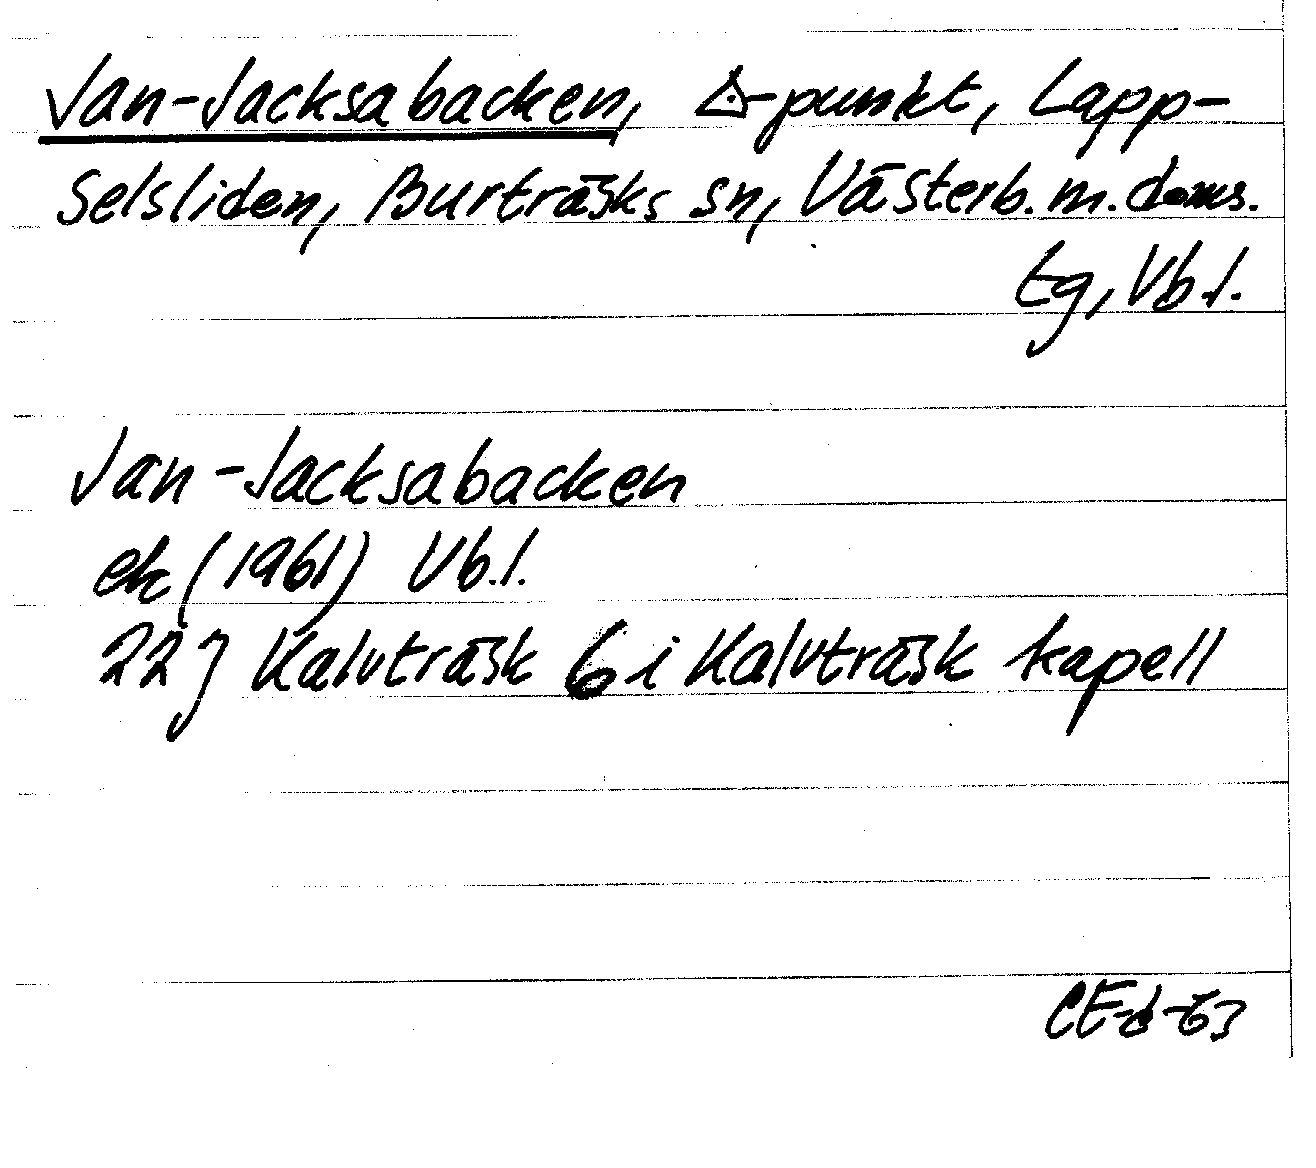 Jan-Jacksabacken, △-punkt, Lapp-
selsliden, Burträsks sn, Västerb. m. doms.
tg, Vb.l.
Jan-Jacksabacken
ek (1961) Vb.l.
22J Kalvträsk 6 i Kalvträsk kapell